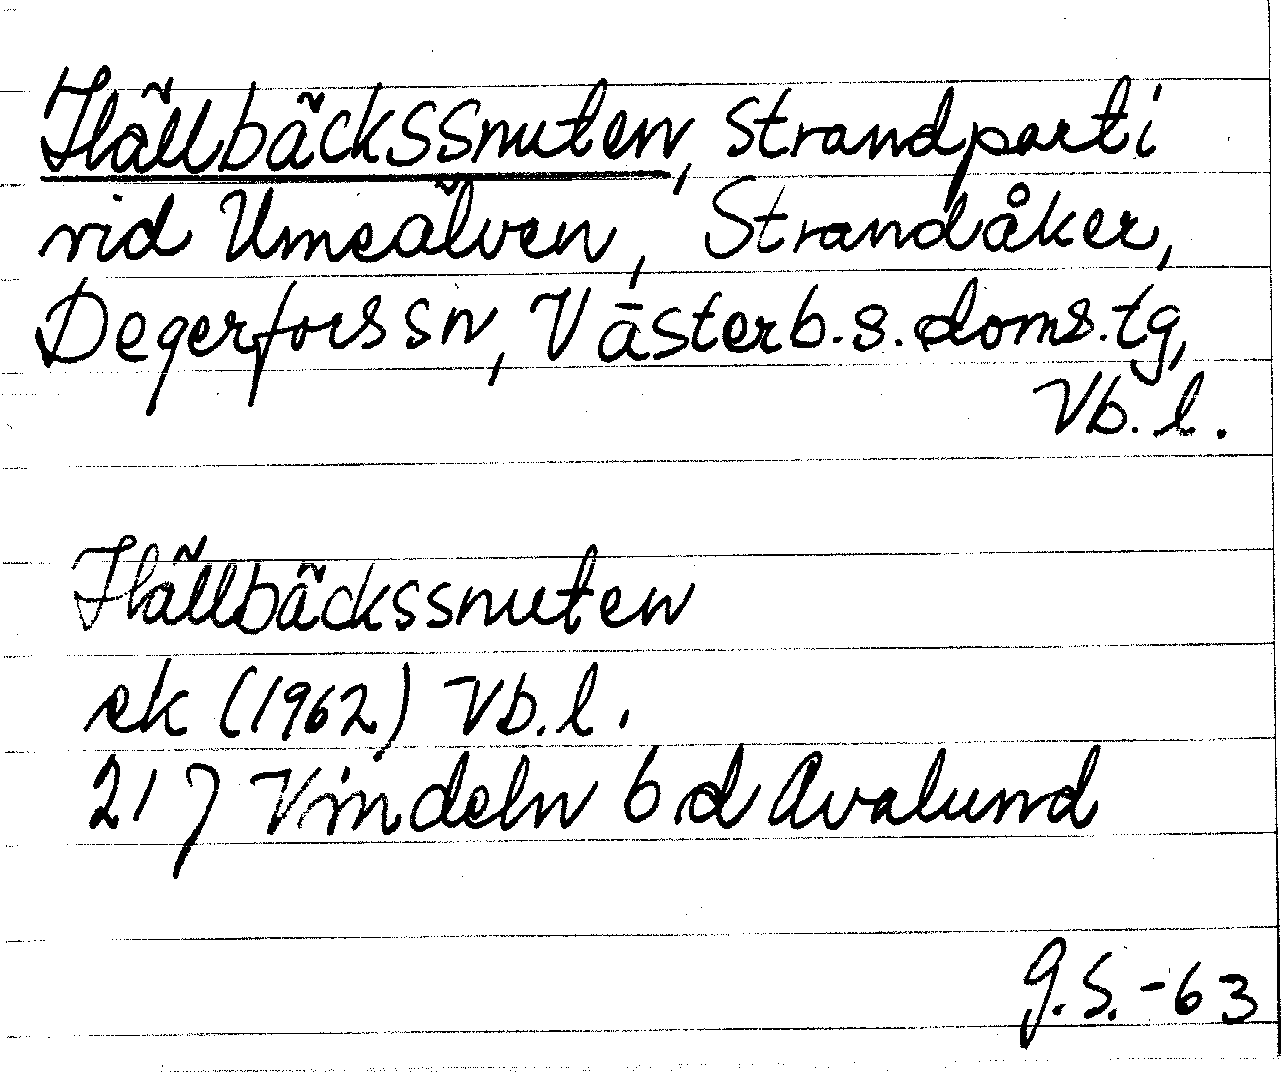 Hällbäckssnuten, strandparti
vid Umeälven, Strandåker,
Degerfors sn, Västerb.s.doms.tg,
Vb.l.
Hällbäckssnuten
ek (1962) Vb.l.
217 Vindeln 6 d Avalund
G.S.-63